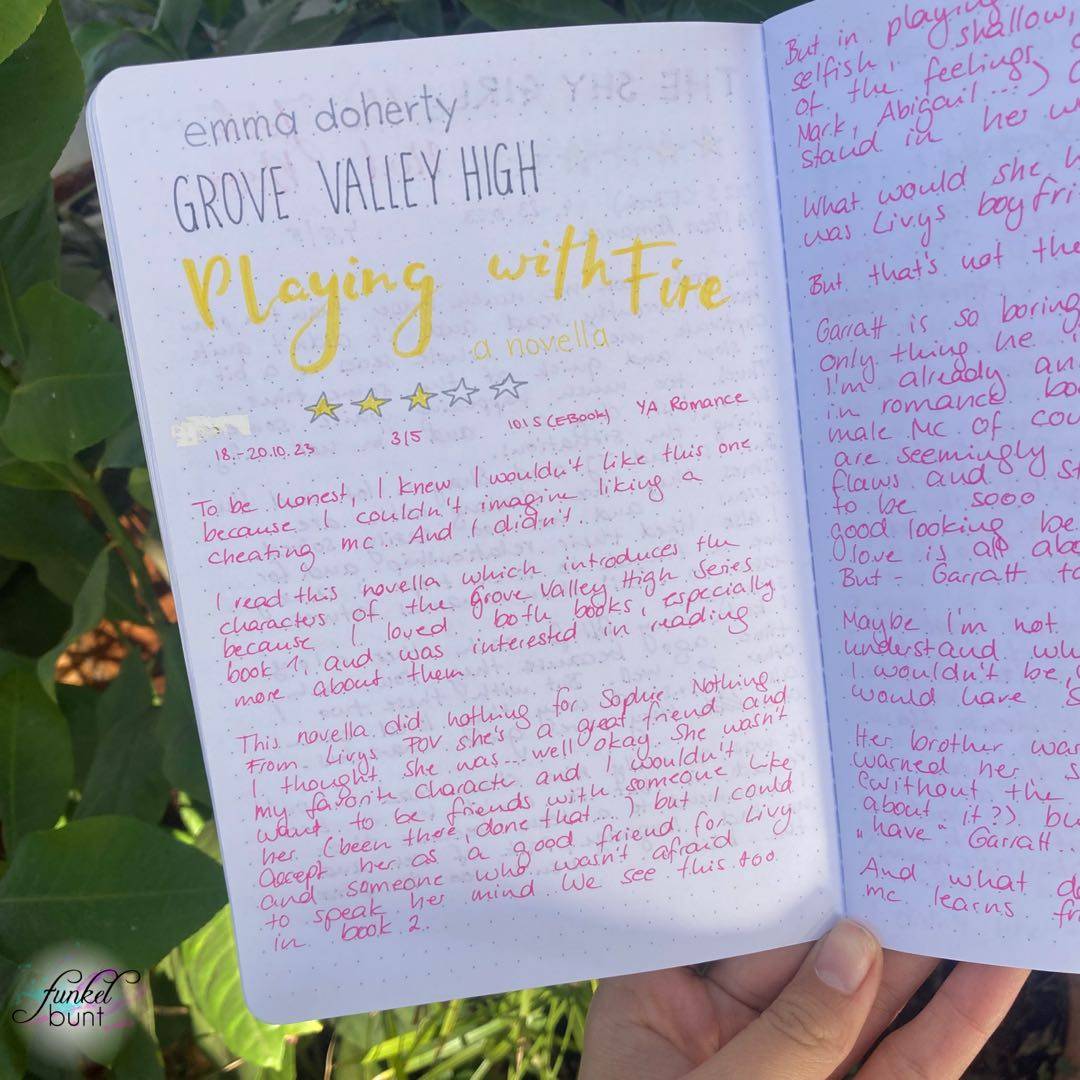 emma doherty
GROVE VALLEY HIGH
Playing with Fire
a novella
18.-20.10.23 3/5 101 S (EBook) YA Romance
To be honest, I knew I wouldn't like this one
because I couldn't imagine liking a
cheating mc. And I didn't.
I read this novella which introduces the
characters of the Grove Valley High Series
because I loved both books, especially
book 1, and was interested in reading
more about them.
This novella did nothing for Sophie. Nothing.
From Livys POV she's a great friend and
I thought she was... well okay. She wasn't
my favorite characte and I wouldn't
want to be friends with someone like
her (been there, done that...) but I could
accept her as a good friend for Livy
and someone who wasn't afraid
to speak her mind. We see this too
in book 2.
But in playing
selfish, shallow,
of the feelings
Mark, Abigail...)
stand in her
What would she
was Livys
But that's not the
Garratt is so boring
only thing he
I'm already
in romance
male MC of
are seemingly
flaws and
to be sooo
good looking
love is all
But - Garratt
Maybe I'm not
understand
I wouldn't be
would have
Her brother
warned her
(without the
about it?)
"have" Garratt..
And what
mc learns
funkel
bunt